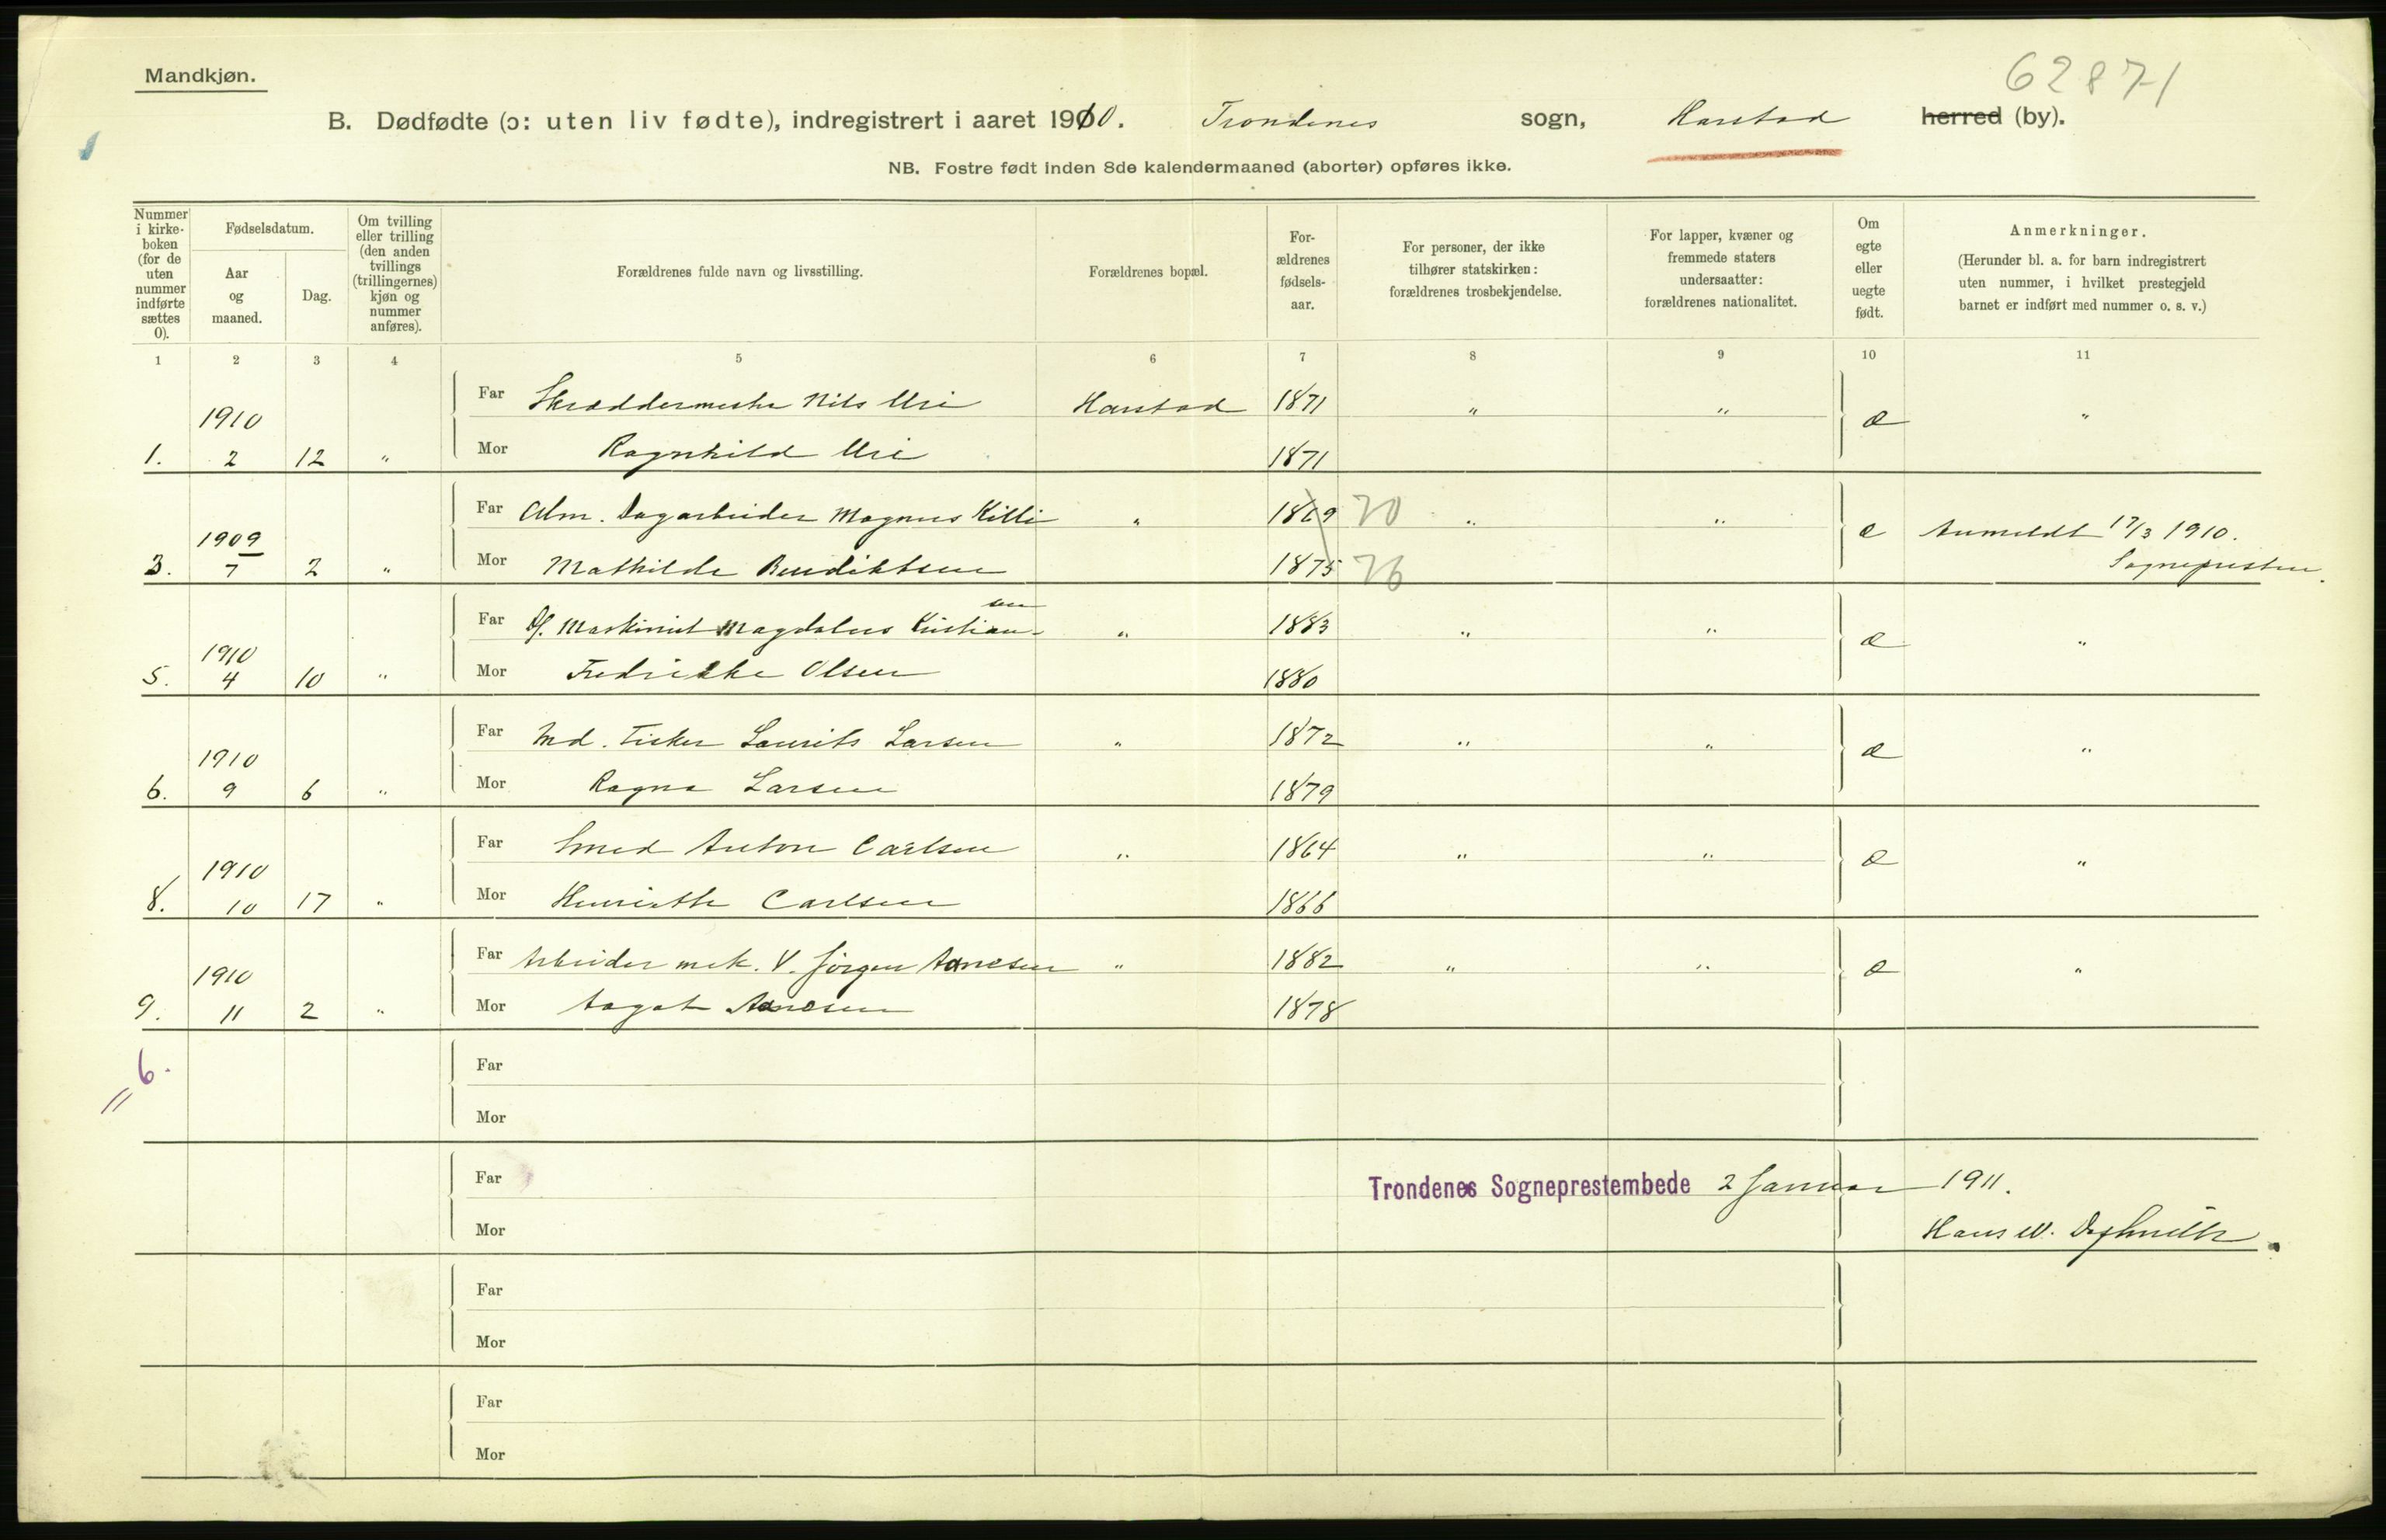 Mandkjøn.
62871
B. Dødfødte (ɔ: uten liv fødte), indregistrert i aaret 1910. Trondenes sogn, Harstad herred (by).
NB. Fostre født inden 8de kalendermaaned (aborter) opføres ikke.
Nummer i kirke-boken (for de uten nummer indførte sættes 0).
Fødselsdatum.
Aar og maaned.
Dag.
Om tvilling eller trilling (den anden tvillings (trillingernes) kjøn og nummer anføres).
Forældrenes fulde navn og livsstilling.
Forældrenes bopæl.
For-ældrenes fødsels-aar.
For personer, der ikke tilhører statskirken: forældrenes trosbekjendelse.
For lapper, kvæner og fremmede staters undersaatter: forældrenes nationalitet.
Om egte eller uegte født.
Anmerkninger.
(Herunder bl. a. for barn indregistrert uten nummer, i hvilket prestegjeld barnet er indført med nummer o. s. v.)
1 2 3 4 5 6 7 8 9 10 11
Far Skræddermester Nils Uri Harstad 1871 " " æ "
1910
1. 2 12 " Mor Ragnhild Uri 1871
Far Alm. Dagarbeider Magnus Killi " 1869 70 " " æ Anmeldt 17/3 1910.
1909
3. 7 2 " Mor Mathilde Bendiktsen 1875 76 Sognepresten.
Far D/. Maskinist Magdalus Kristian-sen " 1883 " " æ "
1910
5. 4 10 " Mor Fredrikke Olsen 1880
Far Md. Fisker Laurits Larsen " 1872 " " æ "
1910
6. 9 6 " Mor Ragna Larsen 1879
Far Smed Anton Carlsen " 1864 " " æ "
1910
8. 10 17 " Mor Henriette Carlsen 1866
Far Arbeider mek. V. Jörgen Aanesen " 1882 " " æ "
1910
9. 11 2 " Mor Aagot Aanesen 1878
= 6.
Far
Mor
Far
Trondenes Sogneprestembede 2 Januar 1911.
Mor
Hans
Far
Mor
Far
Mor